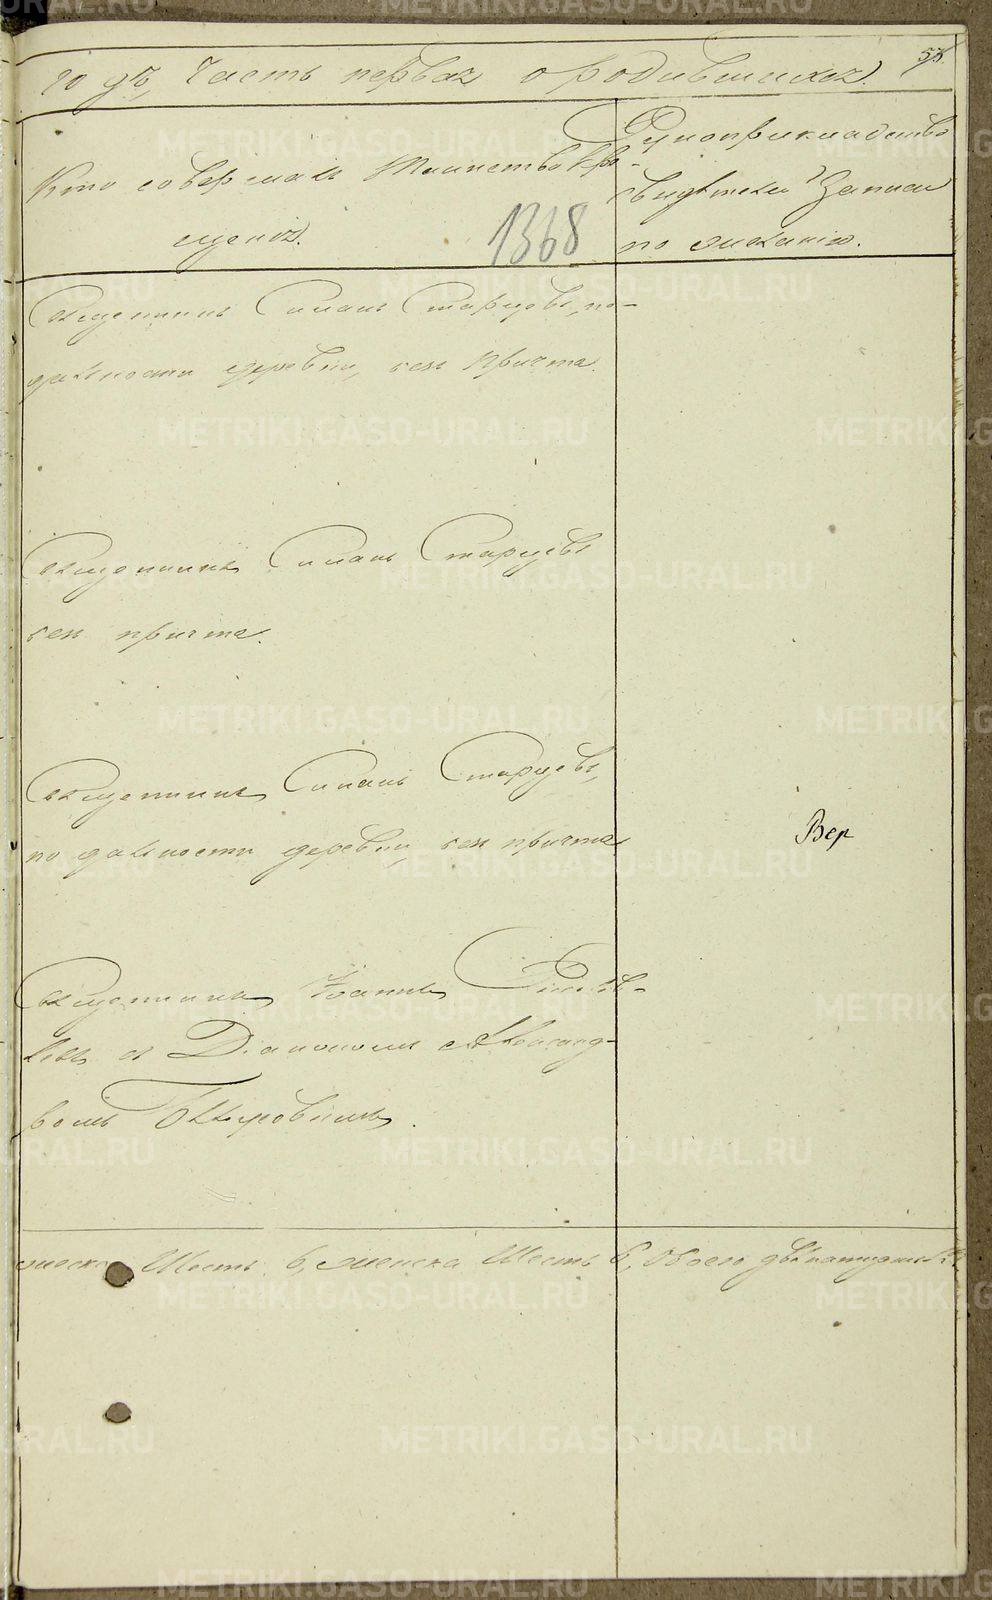 53.
го дъ, Часть первая о родившихся.
Кто совершалъ Таинство Кре-
щенія.
1368
Рукоприкладство
свидѣтелей Записи
по желанію.
Священникъ Симонъ Старцовъ, по
дальности деревни, безъ Причта.
Священникъ Симонъ Старцевъ
безъ причта.
Священникъ Симонъ Старцевъ,
по дальности деревни, безъ причта
Вер
Священникъ Іоаннъ
съ Діакономъ Александ-
ромъ
мужеска Шесть 6, женска Шесть 6, Обоего двенатцать 12.
METRIKI.GASO-URAL.RU